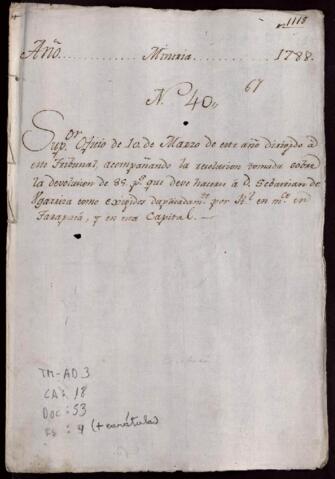 nº 1118
Año. Mineria. 1788.
67
N. 40,,
Sup.or Oficio de 10. de Marzo de este año dirigido á
este Tribunal, acompañando la resolucion tomada sobre
la devolucion de 85 p.s que deve hacerse á D. Sebastian de
Ugarriza como exigidos duplicadam.te por
Tarapacá, y en esta Capital.
TM-AD 3
CA: 18
DOC: 53
FS: 4 (+ carátula)